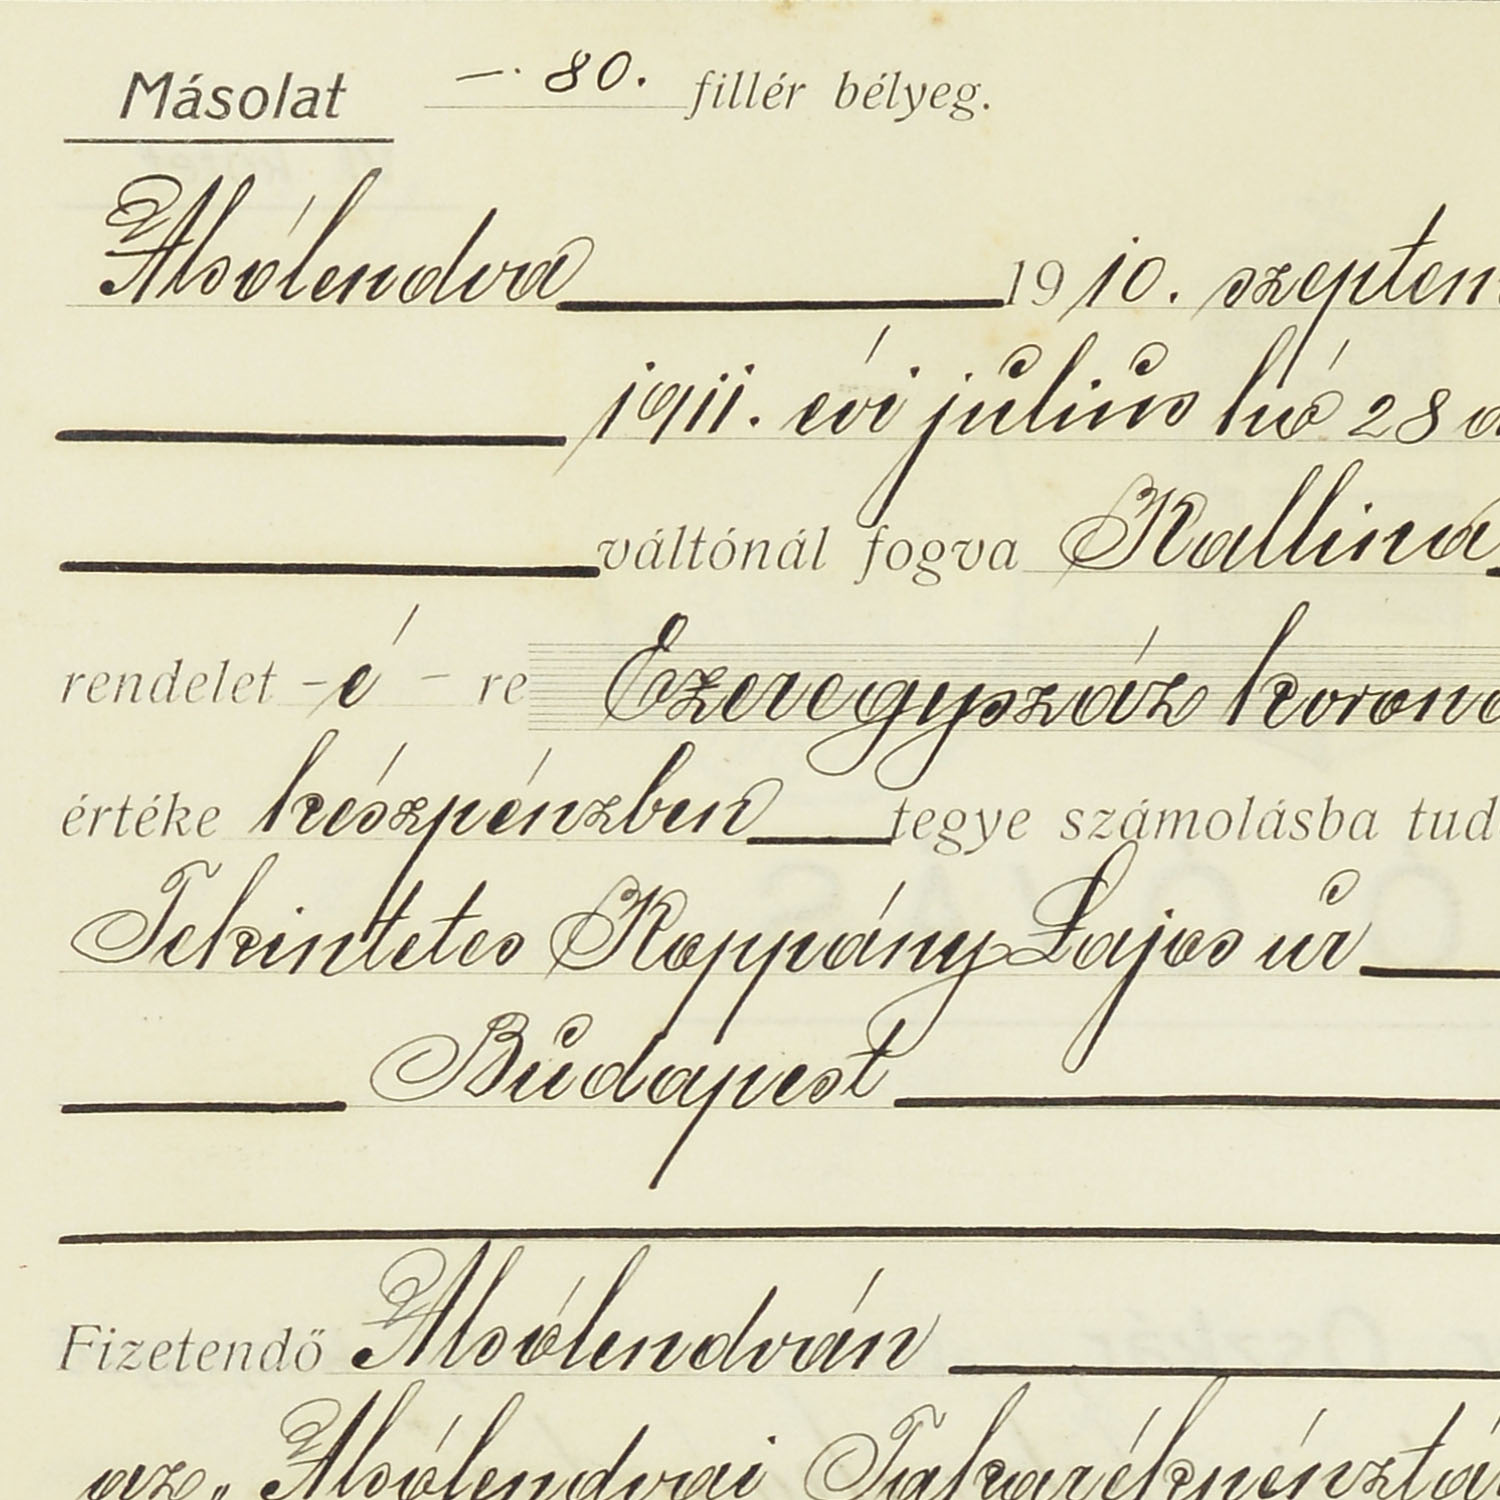 Másolat —. 80. fillér bélyeg.
Alsólendva 1910. szeptem
1911. évi július hó 28 a
váltónál fogva Kallina
rendelet -é- re Ezeregyszáz korona
értéke készpénzben tegye számolásba tud
Tekintetes Koppány Lajos úr
Budapest
Fizetendő Alsólendván
az „Alsólendvai Takarékpénztá